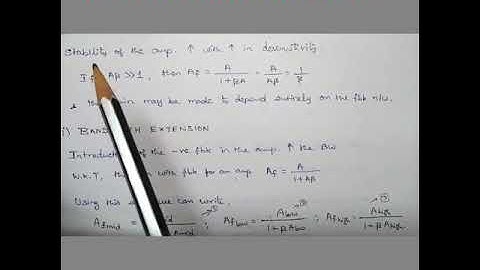 Stability of the amp. ↑ with ↑ in desensitivity
If Aβ >> 1, then Af = A / 1+βA = A / Aβ = 1 / β
may be made to depend entirely on the fbk n/w.
i) BANDWIDTH EXTENSION
Introduction of the -ve fbk in the amp. ↑ the BW
W.K.T, with fbk for an amp. Af = A / 1+Aβ
Using this we can write,
Afmid = ① ; Aflow = Alow / 1+βAlow ② ; Afhigh = Ahigh / 1+βAhigh